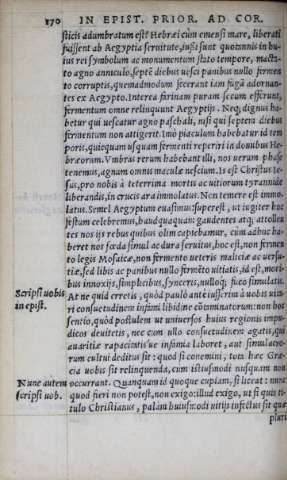 170 IN EPIST. PRIOR. AD COR.
sticis adumbratum est? Hebræi cùm emensi mare, liberati
fuissent ab Aegyptia seruitute, iussi sunt quotannis in hu-
ius rei symbolum ac monumentum stato tempore, macta-
to agno anniculo, septē diebus uesci panibus nullo fermen
to corruptis, quemadmodum fecerant iam fugā adornan-
tes ex Aegypto. Interea farinam puram secum efferunt,
fermentum omne relinquunt Aegyptijs. Neq; dignus ha-
betur qui uescatur agno paschali, nisi qui septem diebus
fermentum non attigerit. Imò piaculum habebatur id tem
poris, quicquam usquam fermenti reperiri in domibus He-
bræorum. Vmbras rerum habebant illi, nos uerum phase
tenemus, agnum omnis maculæ nescium. Is est Christus Ie-
sus, pro nobis à teterrima mortis ac uitiorum tyrannide
liberandis, in crucis ara immolatus. Non temere est immo-
latus. Semel Aegyptum euasimus: superest, ut iugiter hoc
festum celebremus, haudquaquam gaudentes atq; attollen
tes nos ijs rebus quibus olim captebamur, cùm adhuc ha-
beret nos fœda simul ac dura seruitus, hoc est, non fermen
to legis Mosaicæ, non fermento ueteris maliciæ ac uersu-
tiæ, sed libis ac panibus nullo fermēto uitiatis, id est, mori-
bus innoxijs, simplicibus, synceris, nulloq; fuco simulatis.
Scripsi uobis At ne quid erretis, quòd paulò ante iusserim à uobis uita-
in epist. ri consuetudinem infami libidine cōtaminatorum: non hoc
sentio, quòd postulem ut uniuersos huius regionis impu-
dicos deuitetis, nec cum ullo consuetudinem agatis, qui
auaritiæ rapacitatisue infamia laboret, aut simulacro-
rum cultui deditus sit: quod si conemini, tota hæc Græ-
cia uobis sit relinquenda, cum istiusmodi nusquam non
Nunc autem occurrant. Quanquam id quoque cupiam, si liceat: nunc
scripsi uob. quod fieri non potest, non exigo: illud exigo, ut si quis ti-
tulo Christianus, palàm huiusmodi uitijs infectus sit quæ
pluri